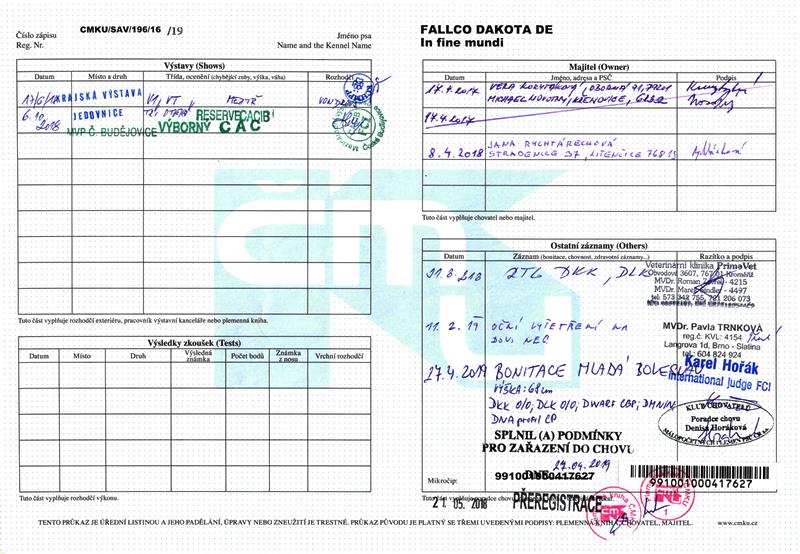 Číslo zápisu
Reg. Nr.
CMKU/SAV/196/16 /19
Jméno psa
Name and the Kennel Name
FALLCO DAKOTA DE
In fine mundi
Výstavy (Shows)
Datum Místo a druh Třída, ocenění (chybějící zuby, výška, váha) Rozhodčí
KRAJSKÁ VÝSTAVA V1, VT
JEDOVNICE
6.10. 2018 MVP Č. BUDĚJOVICE VÝBORNÝ RESERVECACIB CAC
Tuto část vyplňuje rozhodčí exteriéru, pracovník výstavní kanceláře nebo plemenná kniha.
Výsledky zkoušek (Tests)
Datum Místo Druh Výsledná známka Počet bodů Známka z nosu Vrchní rozhodčí
Tuto část vyplňuje rozhodčí výkonu.
Majitel (Owner)
Datum Jméno, adresa a PSČ Podpis
17.7.2017
17.7.2017
8.4.2018 JANA RYCHTÁRECHOVÁ
STRABENICE 37, LITENČICE 76813
Tuto část vyplňuje chovatel nebo majitel.
Ostatní záznamy (Others)
Datum Záznam (bonitace, chovnost, zdravotní záznamy...) Razítko a podpis
RTG DKK, DLK
Veterinární klinika PrimaVet
Obvodová 3607, 767 01 Kroměříž
MVDr. Roman - 4215
MVDr. Marek - 4497
tel: 573 342 755, 721 206 073
11.2.19 OČNÍ VYŠETŘENÍ NA
MVDr. Pavla TRNKOVÁ
reg.č. KVL: 4154
Langrova 1d, Brno - Slatina
tel: 604 824 924
27.4.2019 BONITACE MLADÁ BOLESLAV
Karel Hořák
International judge FCI
VÝŠKA: 68cm
DKK 0/0, DLK 0/0, DWARF CBP, DMN/N
DNA profil CP
KLUB CHOVATELŮ
Poradce chovu
Denisa Horáková
MÁLOPOČETNÝCH PLEMEN PSŮ
SPLNIL (A) PODMÍNKY
PRO ZAŘAZENÍ DO CHOVU
DNE 27.04.2019
Mikročip: 991001000417627
991001000417627
Tuto část vyplňuje poradce chovu
21. 05. 2018 PŘEREGISTRACE
TENTO PRŮKAZ JE ÚŘEDNÍ LISTINOU A JEHO PADĚLÁNÍ, ÚPRAVY NEBO ZNEUŽITÍ JE TRESTNÉ. PRŮKAZ PŮVODU JE PLATNÝ SE TŘEMI UVEDENÝMI PODPISY: PLEMENNÁ KNIHA, CHOVATEL, MAJITEL.
www.cmku.cz